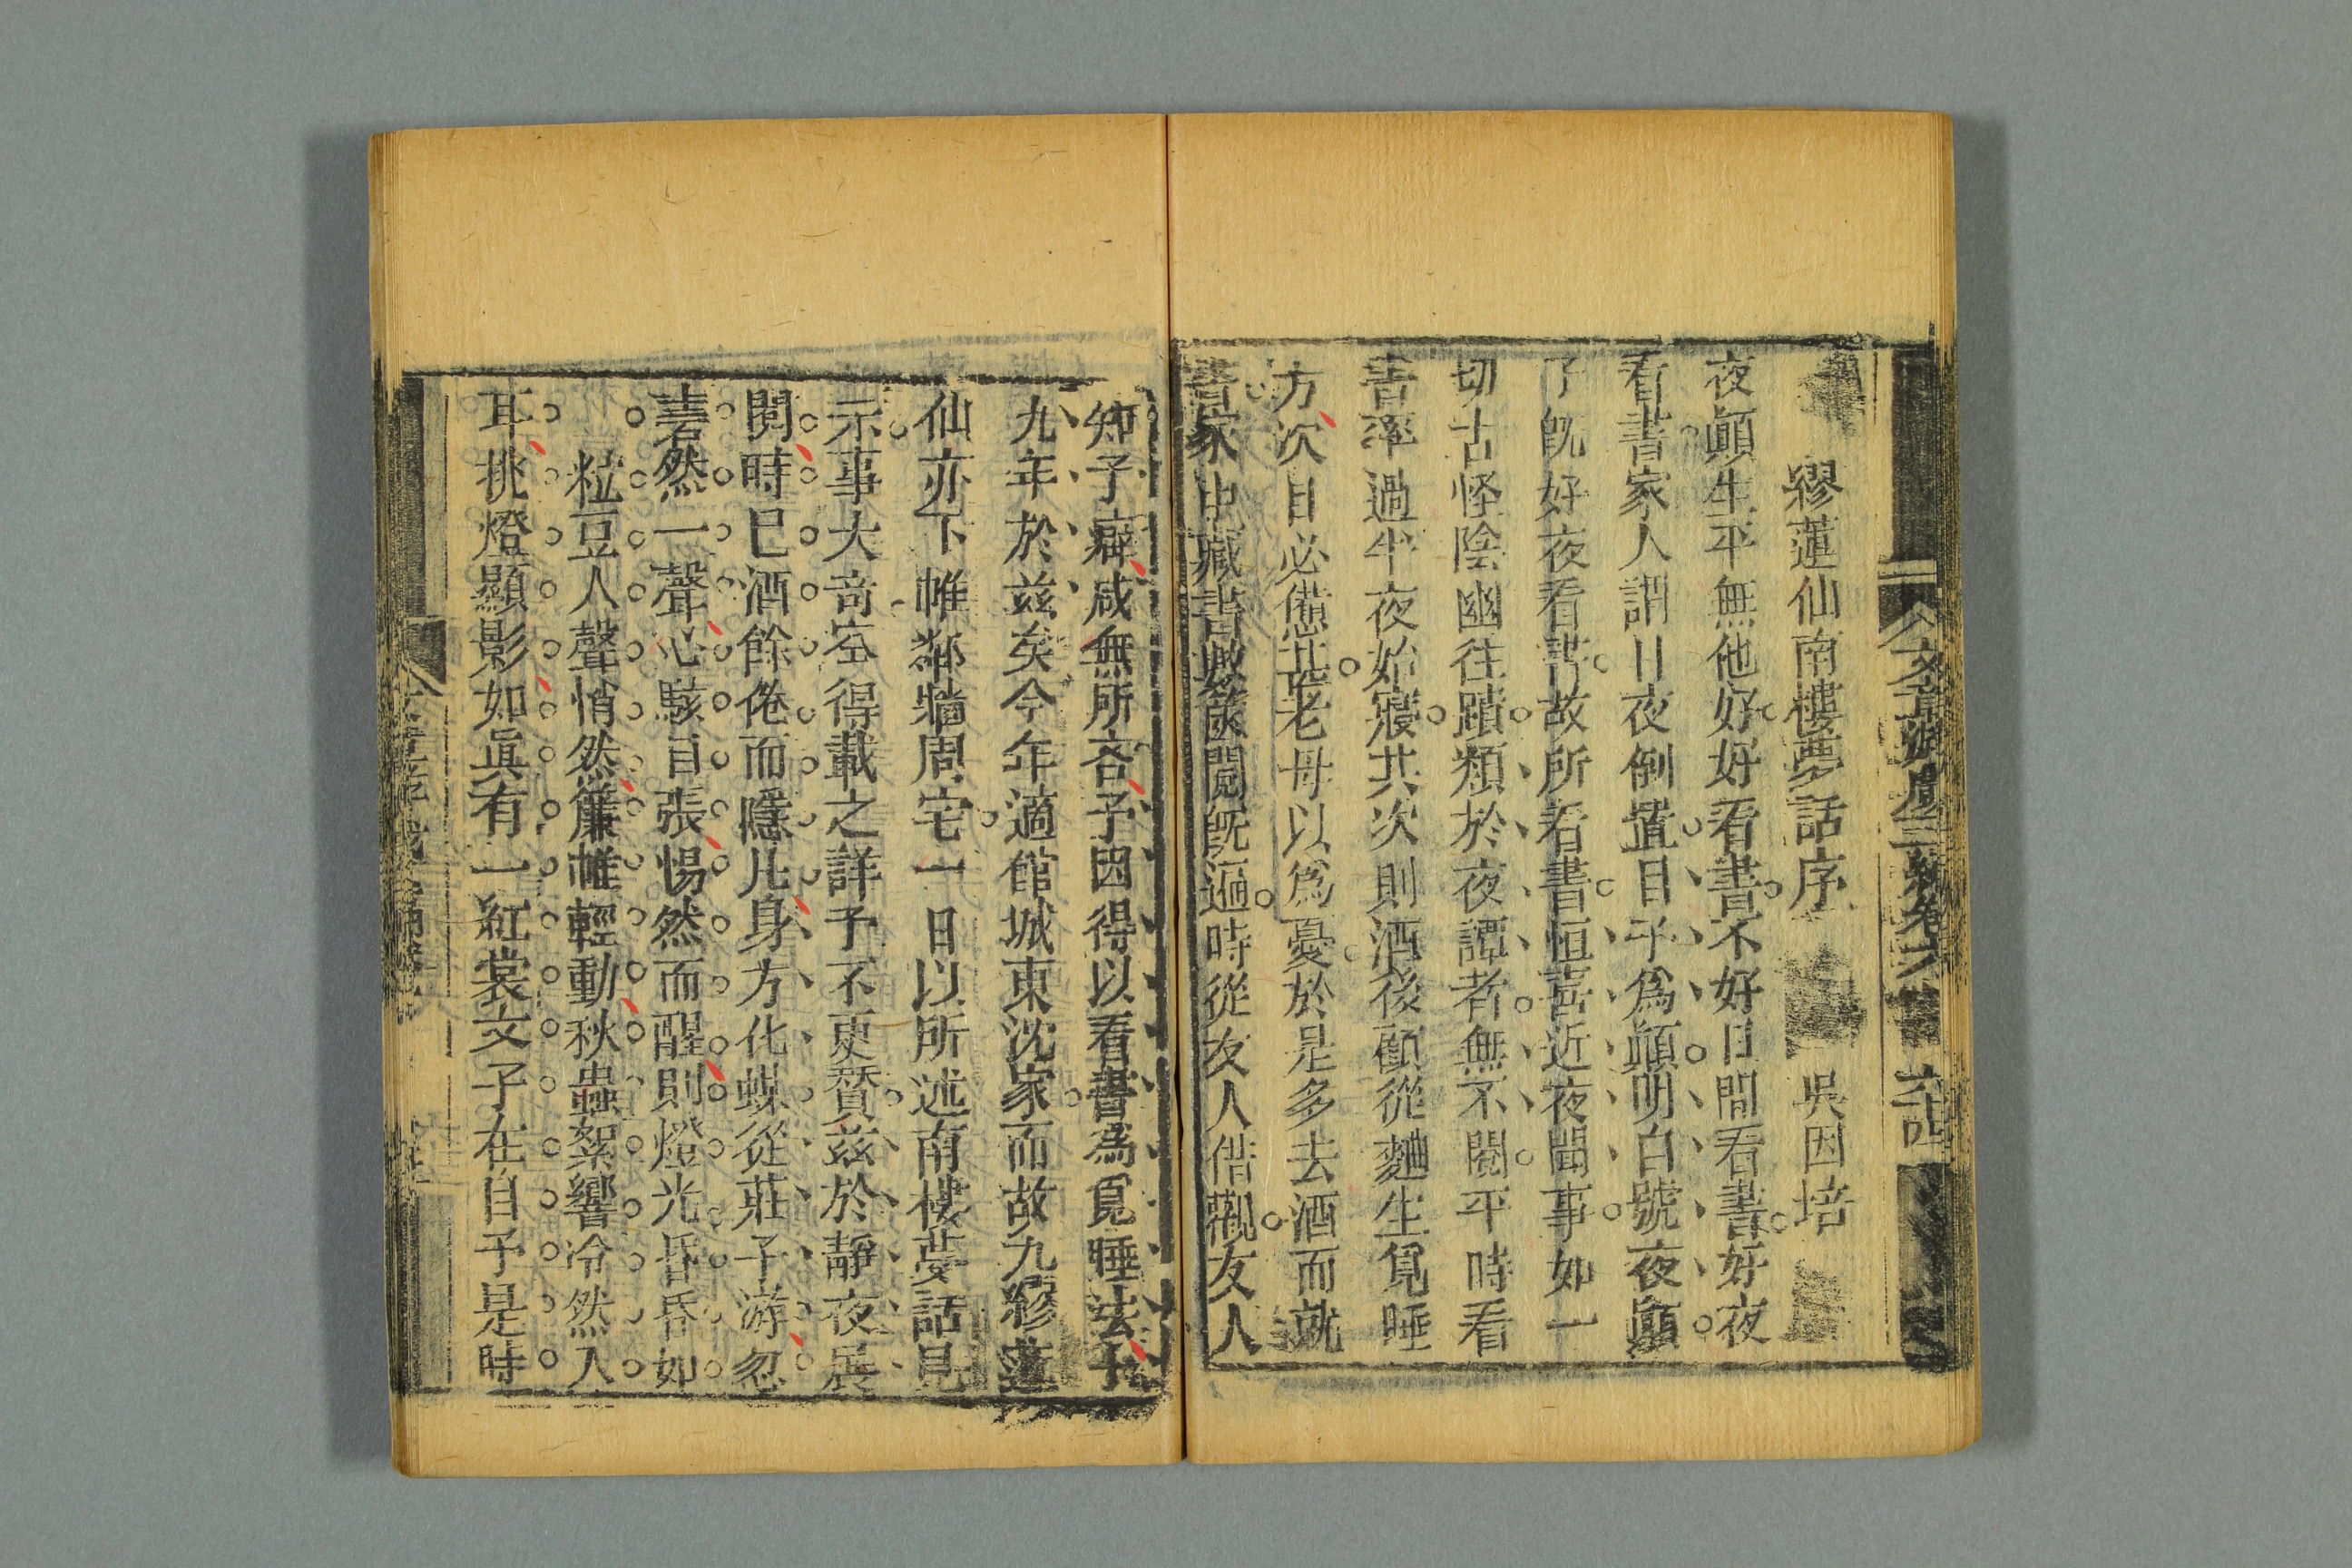 文章游戲三編卷六 六十四
繆蓮仙南樓夢話序 吳因培
夜顚生平無他好好看書不好日間看書好夜
看書家人謂日夜倒置目予爲顚明白號夜顚
了旣好夜看書故所看書恒喜近夜間事如一
切古怪陰幽往蹟類於夜譚者無不閱平時看
書率過半夜始寢共次則酒後顧從麯生覓睡
方次日必憊甚老母以爲憂於是多去酒而就
書家中藏書數篋閱旣遍時從友人借觀友人
知予癖咸無所吝予因得以看書爲覓睡法予
九年於兹矣今年適館城東沈家而故九繆蓮
仙亦下帷鄰牆周宅一日以所述南樓夢話見
示事大奇空得載之詳予不更贅兹於靜夜展
閱時已酒餘倦而隱几身方化蝶從莊子游忽
砉然一聲心駭目張惕然而醒則燈光昏昏如
粒豆人聲悄然簾帷輕動秋蟲絮響冷然入
耳挑燈顯影如眞有一紅裳女子在自予是時